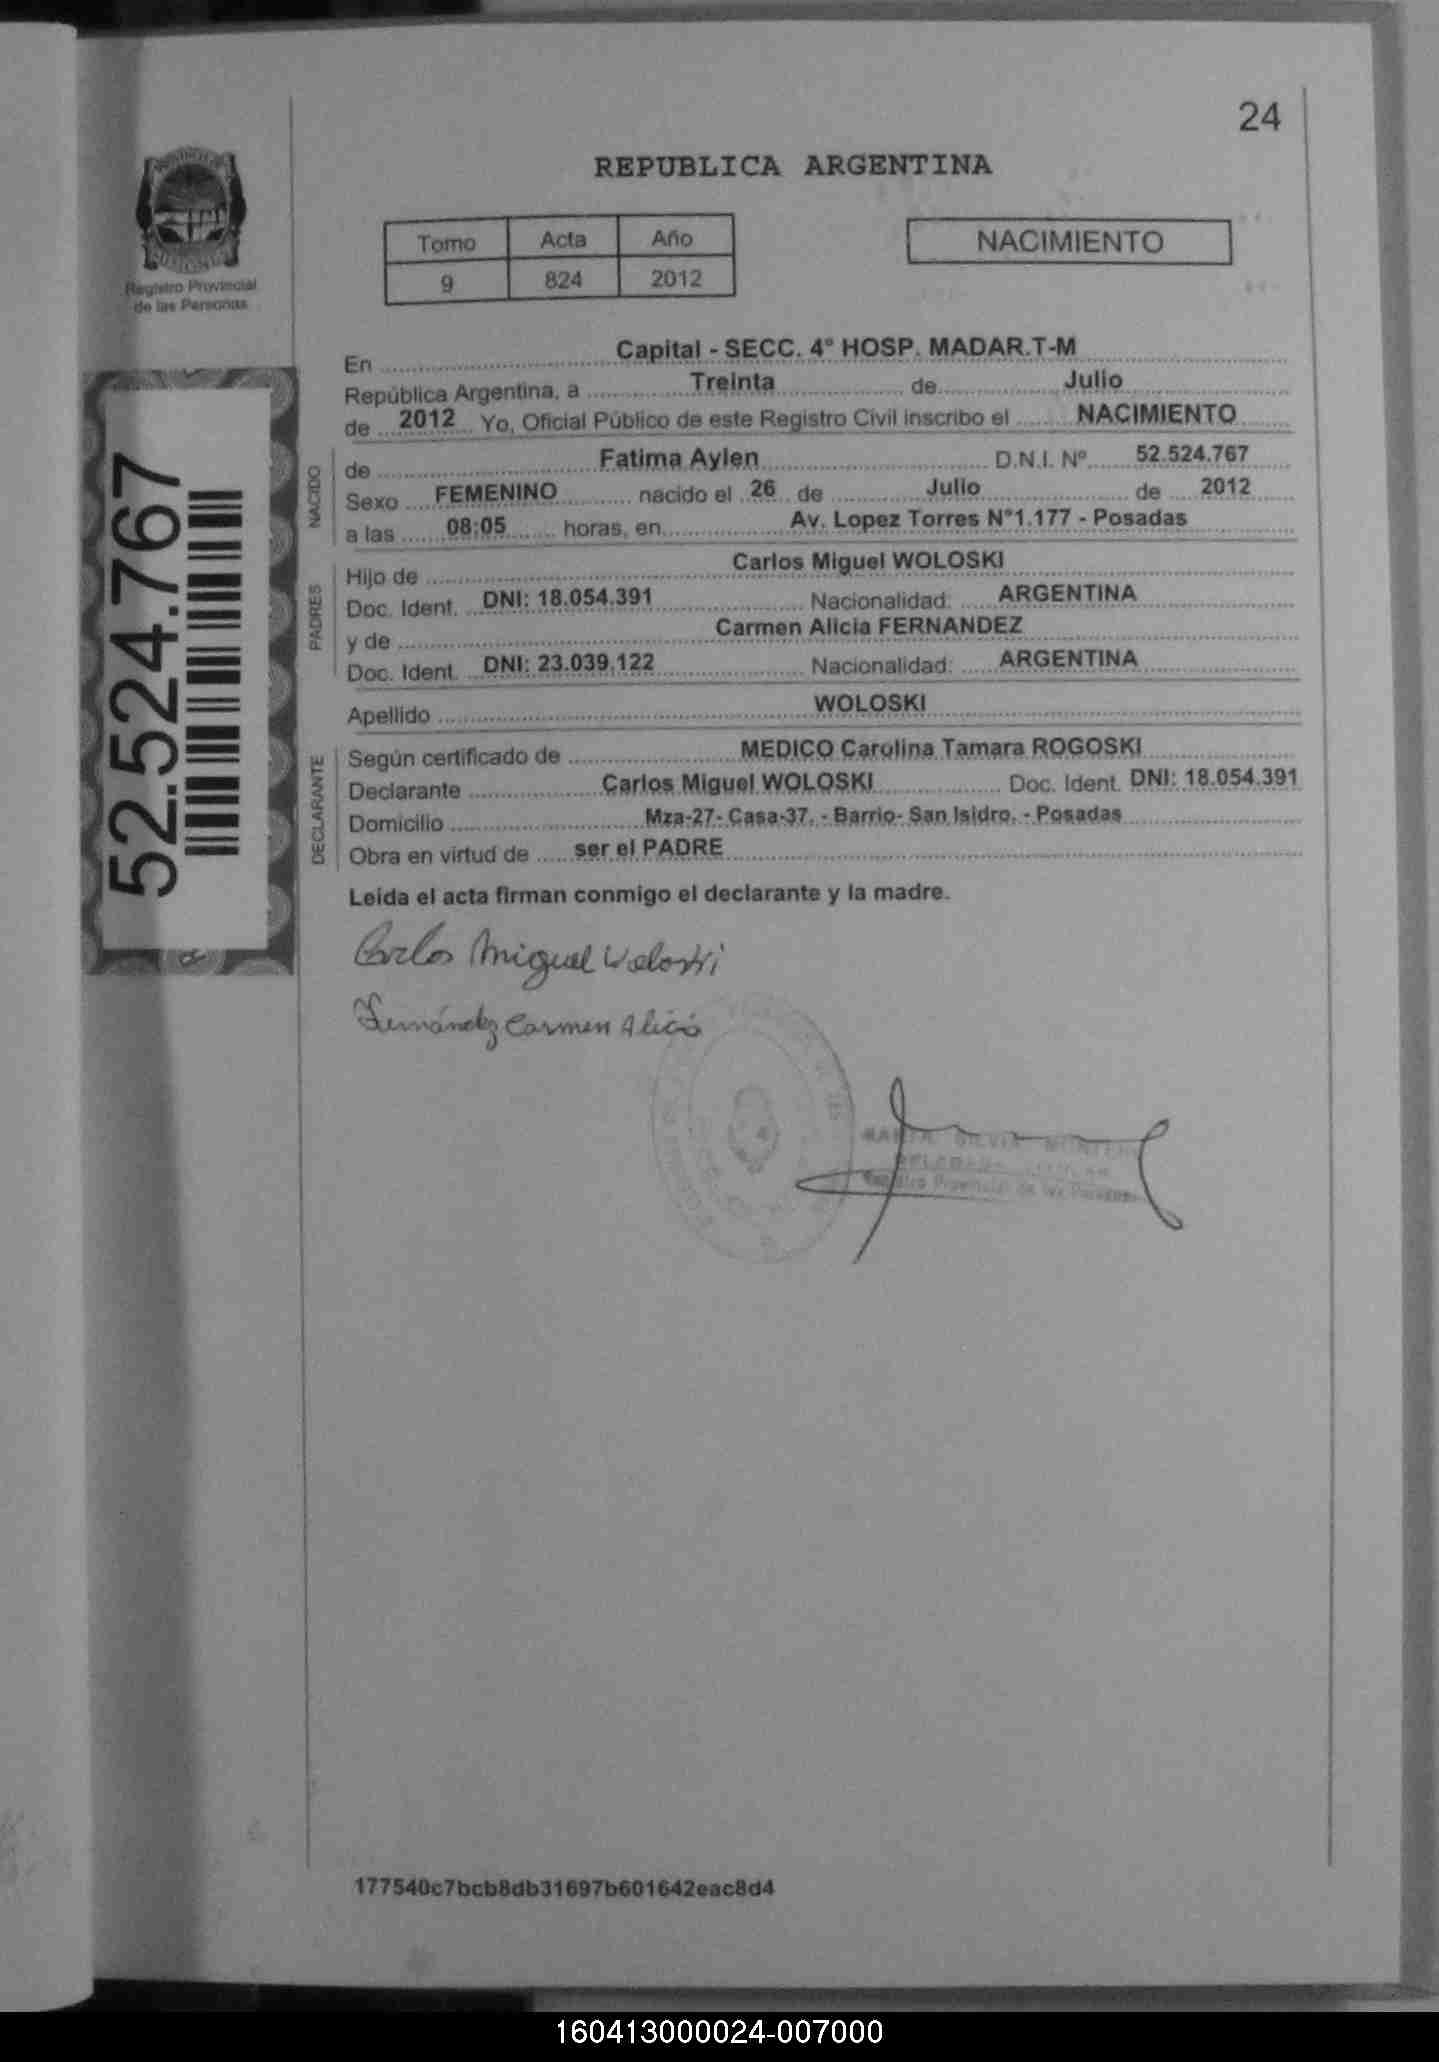 24
REPUBLICA ARGENTINA
Registro Provincial
de las Personas
Tomo Acta Año
9 824 2012
NACIMIENTO
52.524.767
En Capital - SECC. 4° HOSP. MADAR.T-M
República Argentina, a Treinta de Julio
de 2012 Yo, Oficial Público de este Registro Civil inscribo el NACIMIENTO
NACIDO
de Fatima Aylen D.N.I. Nº 52.524.767
Sexo FEMENINO nacido el 26 de Julio de 2012
a las 08:05 horas, en Av. Lopez Torres N°1.177 - Posadas
PADRES
Hijo de Carlos Miguel WOLOSKI
Doc. Ident. DNI: 18.054.391 Nacionalidad: ARGENTINA
y de Carmen Alicia FERNANDEZ
Doc. Ident. DNI: 23.039.122 Nacionalidad: ARGENTINA
Apellido WOLOSKI
DECLARANTE
Según certificado de MEDICO Carolina Tamara ROGOSKI
Declarante Carlos Miguel WOLOSKI Doc. Ident. DNI: 18.054.391
Domicilio Mza-27- Casa-37. - Barrio- San Isidro. - Posadas
Obra en virtud de ser el PADRE
Leida el acta firman conmigo el declarante y la madre.
Carlos Miguel Woloski
Fernández Carmen Alicia
SILVIA
Registro Provincial de las Personas
177540c7bcb8db31697b601642eac8d4
160413000024-007000